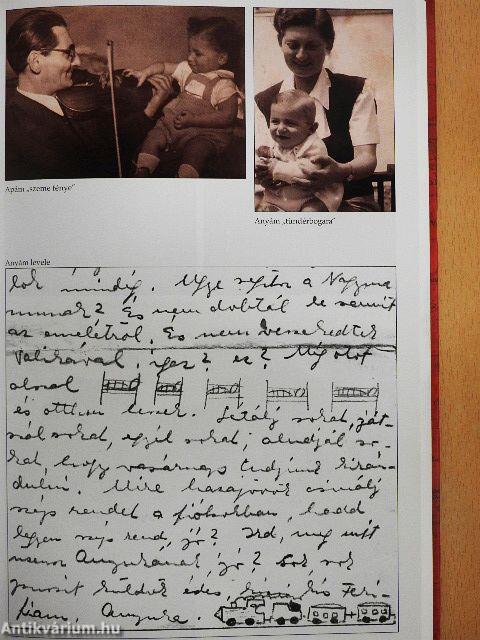 Apám „szeme fénye”
Anyám „tündérbogara”
Anyám levele
lok mindig. Ugye segítsz a Nagyma
munak? És nem dobtál le semmit
az emeletről. És nem verekedtek
Valikával, igaz? ez? Még ötöt
alszol
és otthon leszek. Sétálj sokat, ját-
szál sokat, egyél sokat, aludjál so-
kat, hogy vasárnap tudjunk kirán-
dulni. Mire hazajövök csinálj
szép rendet a fiókokban, hadd
legyen szép rend, jó? Írd, meg mit
Anyukának, jó? Sok sok
puszit küldök édes, kis Feri-
kám, Anyuka.
Antikvárium.hu